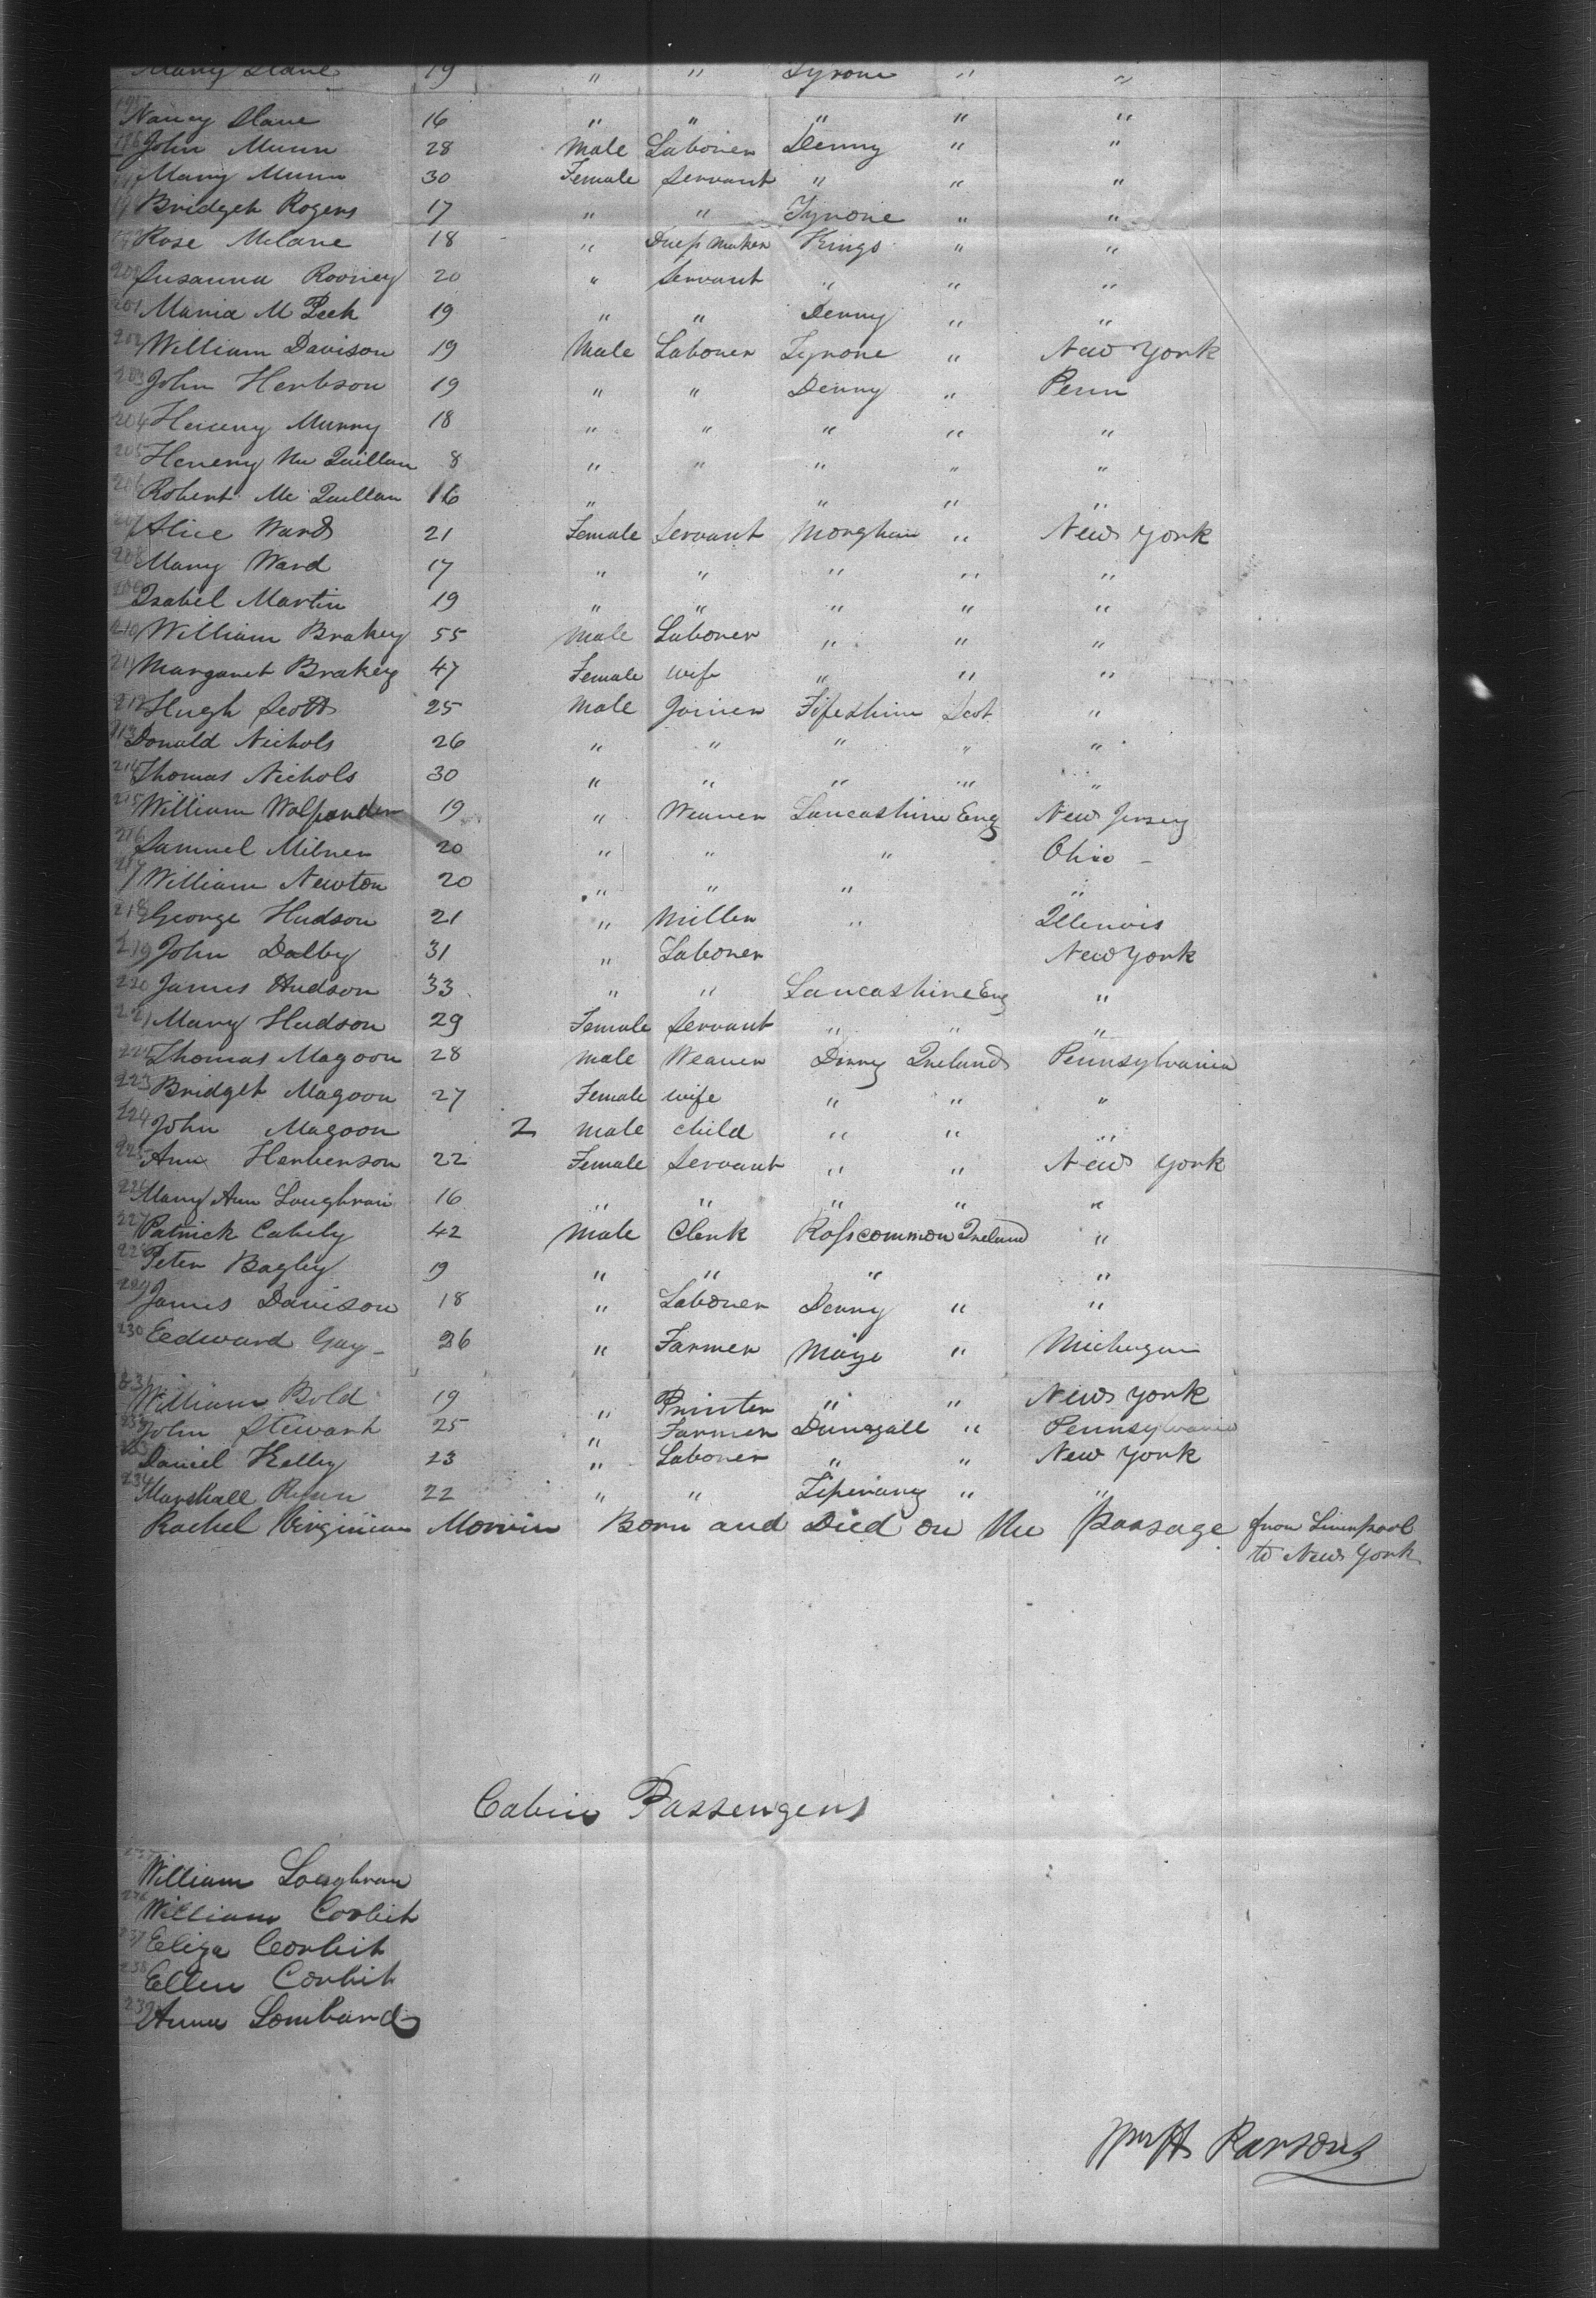 Mary Slane 19 " " Tyrone " "
195 Nancy Slane 16 " " " " "
196 John Munn 28 Male Laborer Derry " "
197 Mary Munn 30 Female Servant " " "
198 Bridget Rogers 17 " " Tyrone " "
199 Rose Mclane 18 " Dress Maker Kings " "
200 Susanna Rooney 20 " Servant " " "
201 Maria M Peek 19 " " Derry " "
202 William Davison 19 Male Laborer Tyrone " New York
203 John Herbson 19 " " Derry " Penn
204 Heneny Murry 18 " " " " "
205 Heneny Mc Quillan 8 " " " " "
206 Robert Mc Quillan 16 " " " "
207 Alice Ward 21 Female Servant Monghan " New York
208 Mary Ward 17 " " " " "
209 Isabel Martin 19 " " " " "
210 William Brakey 55 Male Laborer " " "
211 Margaret Brakey 47 Female wife " " "
212 Hugh Scott 25 Male Joiner Fifeshire Scot "
213 Donald Nichols 26 " " " " "
214 Thomas Nichols 30 " " " " "
215 William 19 " Weaver Lancashire Eng New Jersey
216 Samuel Milner 20 " " " Ohio -
217 William Newton 20 " " " "
218 George Hudson 21 " Miller " Illinois
219 John Dalby 31 " Laborer New York
220 James Hudson 33 " " Lancashire Eng "
221 Mary Hudson 29 Female Servant " " "
222 Thomas Magoon 28 Male Weaver Derry Ireland Pennsylvania
223 Bridget Magoon 27 Female wife " " "
224 John Magoon 2 Male child " " "
225 Ann Henberson 22 Female Servant " " New York
226 Mary Ann Loughran 16 " " " " "
227 Patrick Cahily 42 Male Clerk Rosscommon Ireland "
228 Peter Bagley 19 " " " "
229 James Davison 18 " Laborer Derry " "
230 Eedward Gay 26 " Farmer Mayo " Michagan
231 William Bold 19 " Printer " " New York
232 John Stewart 25 " Farmer Dunagall " Pennsylvania
233 Daniel Kelly 23 " Laborer " " New York
234 Marshall 22 " " Tiperary " "
Rachel Virginian Morrin Born and Died on the Passage from Liverpool
to New York
Cabin Passengers
235 William Loughran
236 William Corbit
237 Eliza Corbit
238 Ellen Corbit
239 Anna Lombard
Parsons